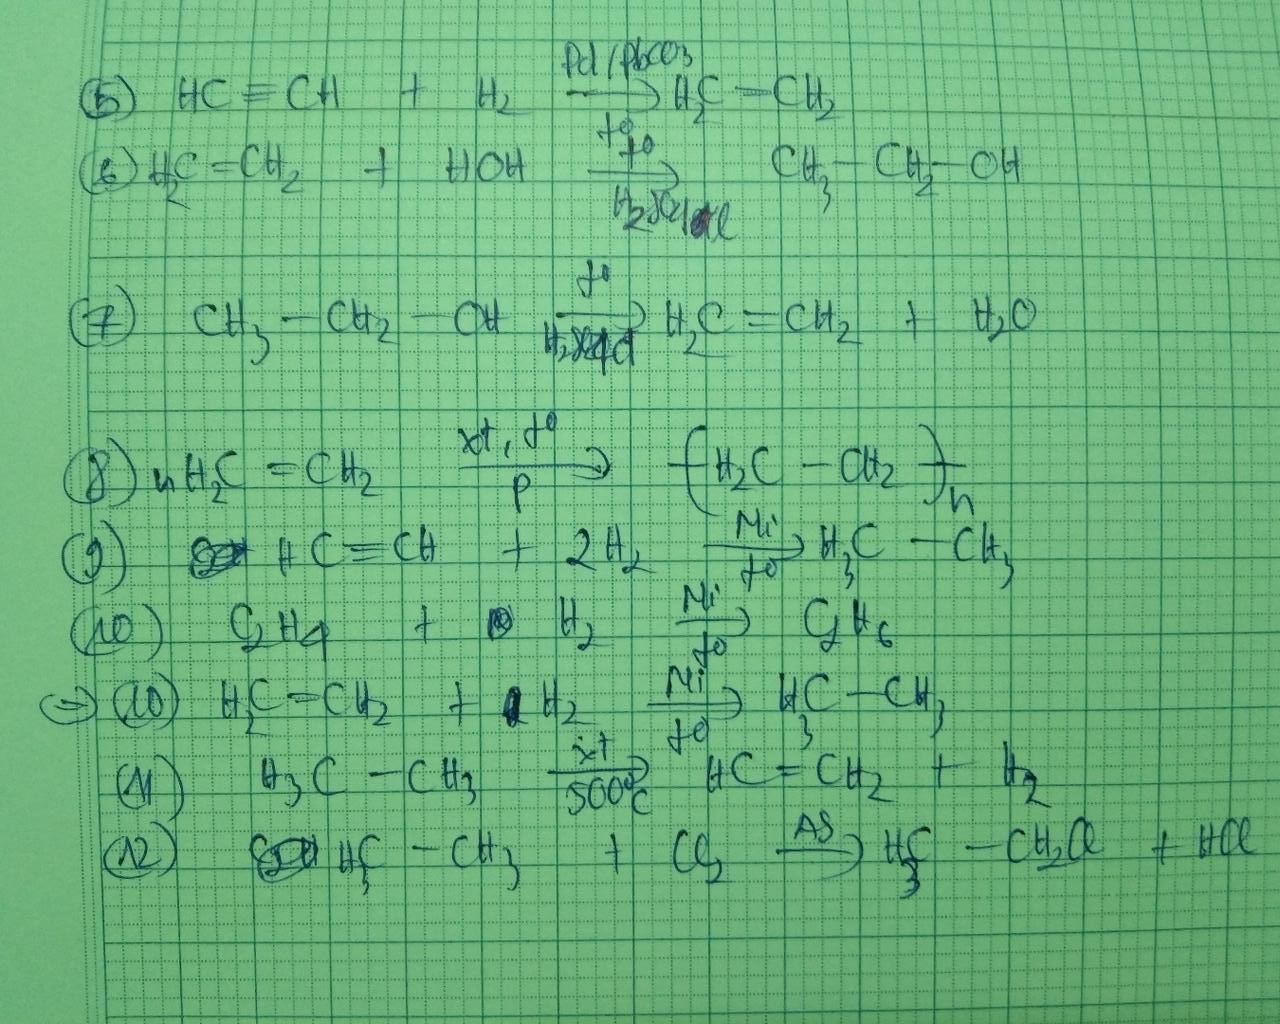 (5) HC ≡ CH + H₂ —Pd/PbCO₃, t°→ H₂C = CH₂
(6) H₂C = CH₂ + HOH —t°, H₂SO₄ l→ CH₃ – CH₂ – OH
(7) CH₃ – CH₂ – OH —t°, H₂SO₄ đ→ H₂C = CH₂ + H₂O
(8) nH₂C = CH₂ —xt, t°, p→ (H₂C – CH₂)n
(9) HC ≡ CH + 2H₂ —Ni, t°→ H₃C – CH₃
(10) C₂H₄ + H₂ —Ni, t°→ C₂H₆
⇒ (10) H₂C = CH₂ + H₂ —Ni, t°→ H₃C – CH₃
(11) H₃C – CH₃ —xt, 500°C→ HC = CH₂ + H₂
(12) H₃C – CH₃ + Cl₂ —AS→ H₃C – CH₂Cl + HCl